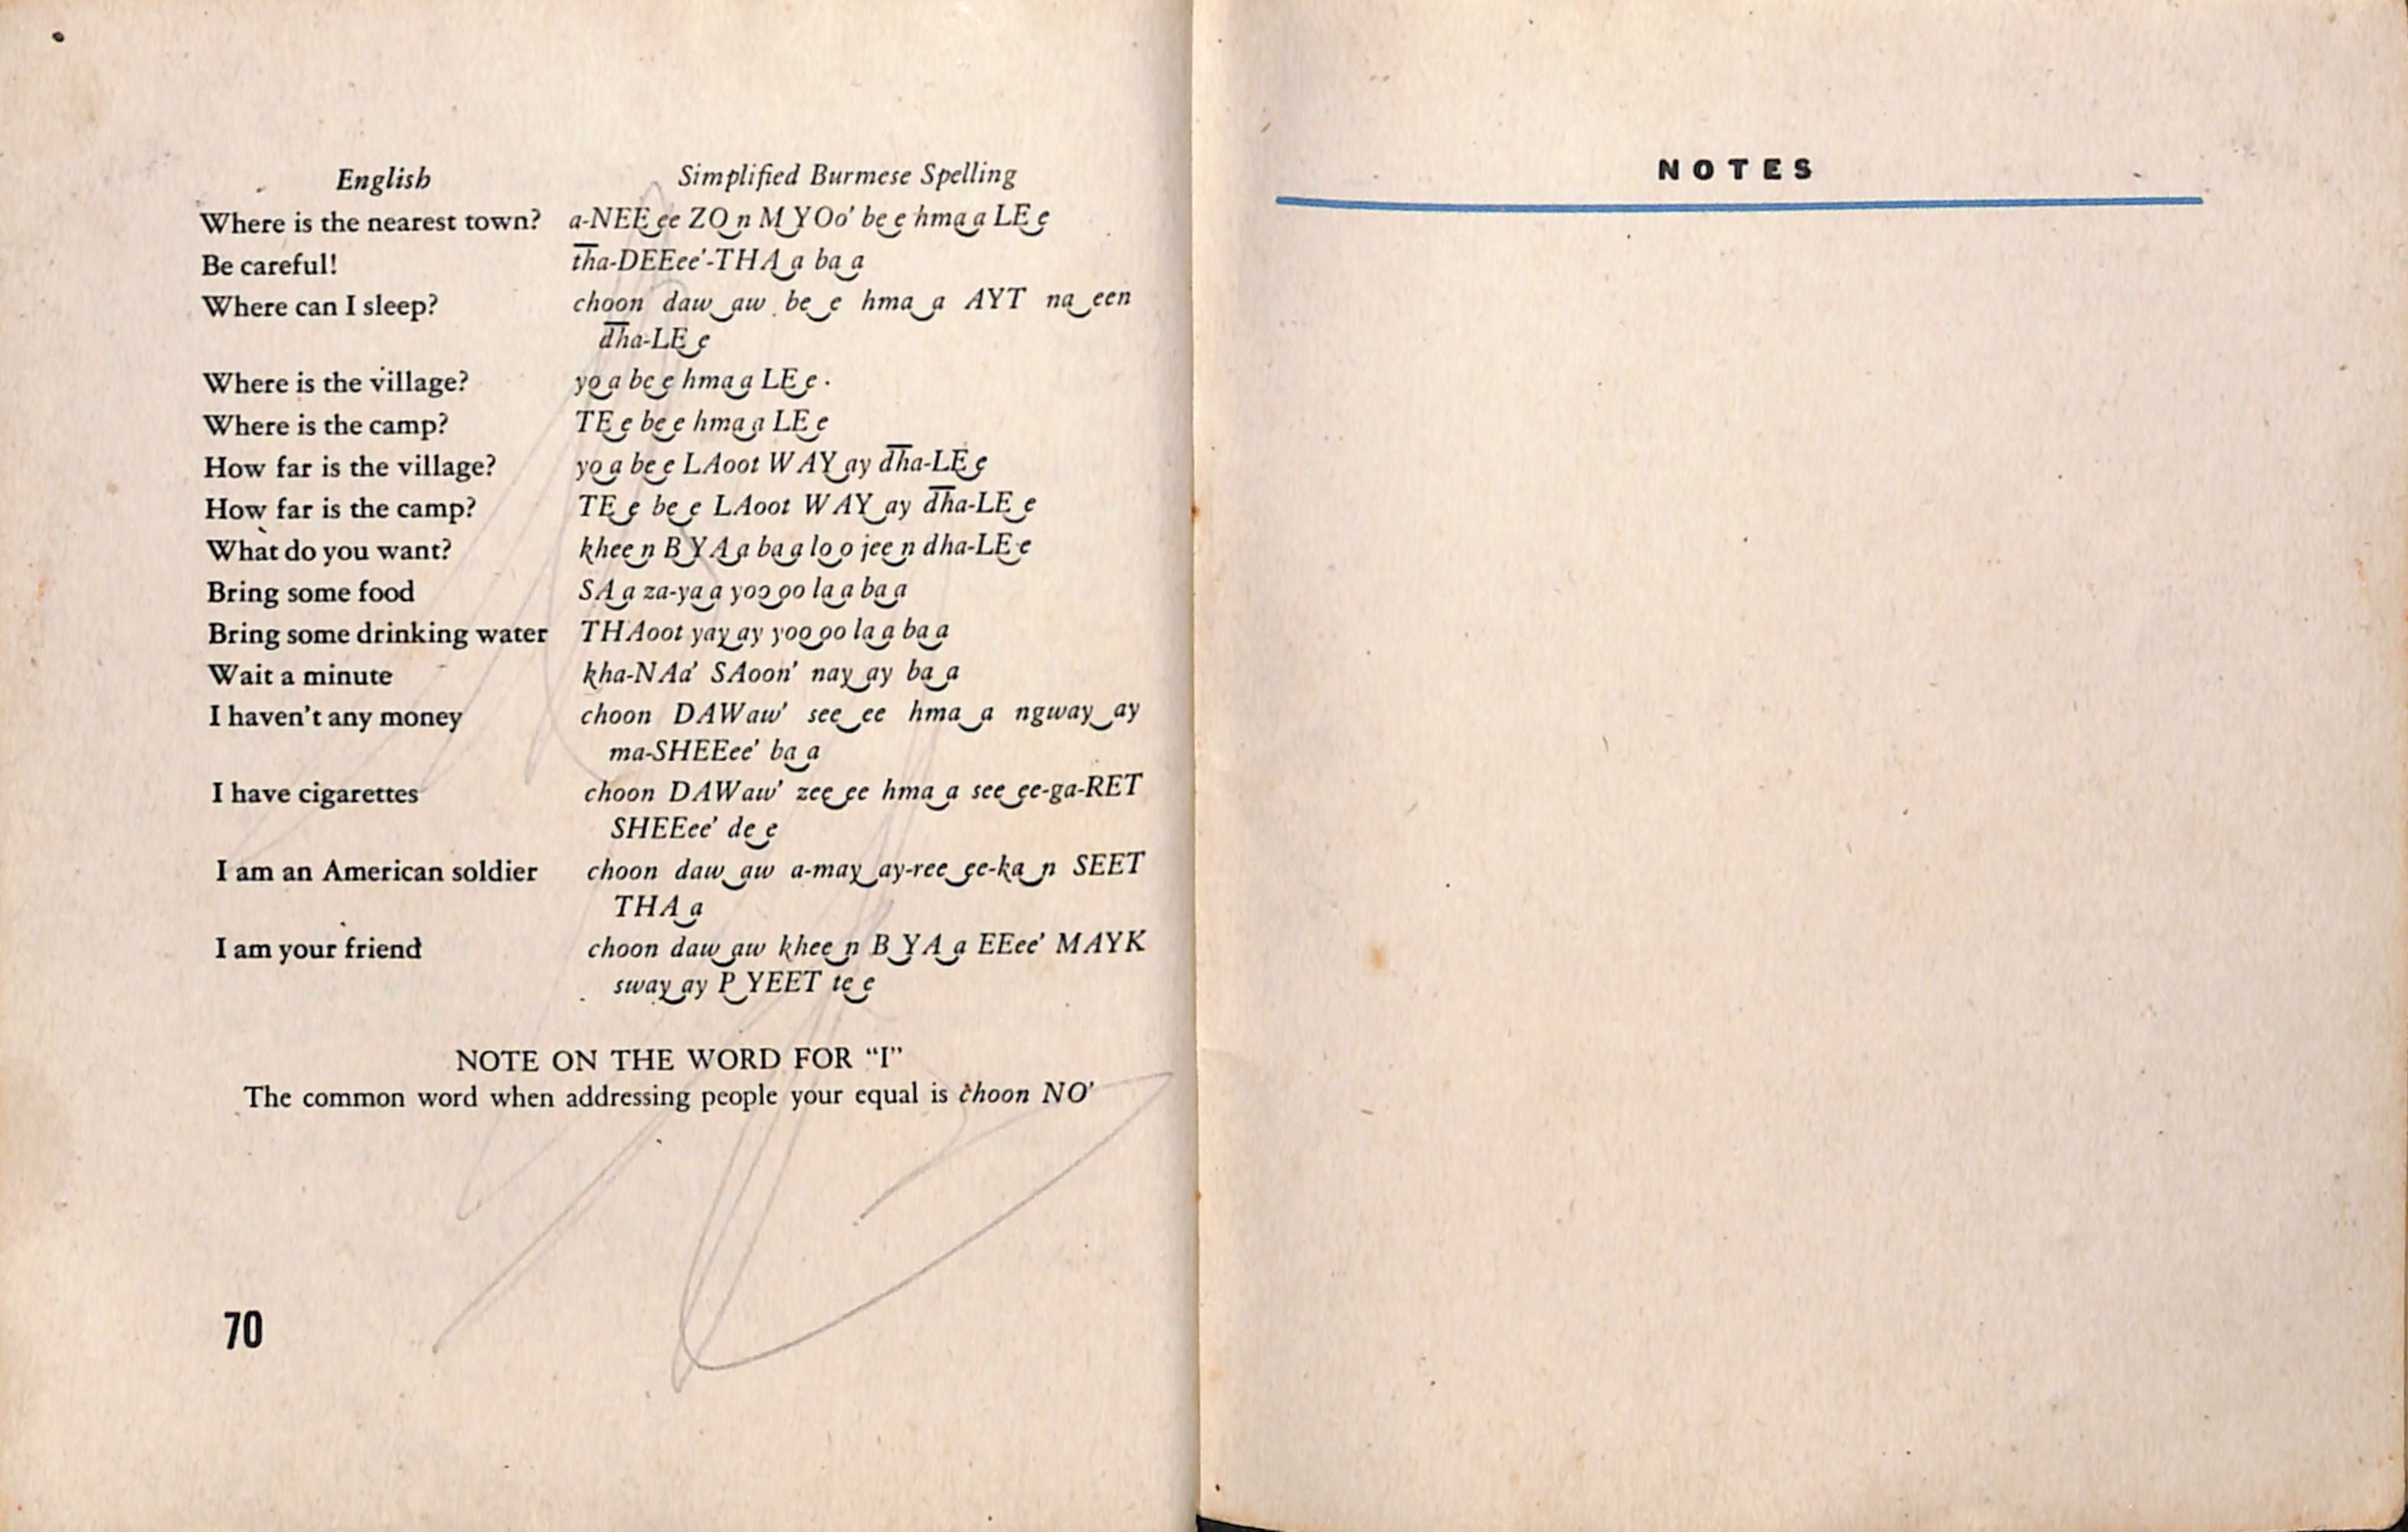 English Simplified Burmese Spelling
Where is the nearest town? a-NEE‿ee ZO‿n M‿YOo’ be‿e hma‿a LE‿e
Be careful! t͞ha-DEEee’-THA‿a ba‿a
Where can I sleep? choon daw‿aw be‿e hma‿a AYT na‿een
d͞ha-LE‿e
Where is the village? yo‿a be‿e hma‿a LE‿e
Where is the camp? TE‿e be‿e hma‿a LE‿e
How far is the village? yo‿a be‿e LAoot WAY‿ay d͞ha-LE‿e
How far is the camp? TE‿e be‿e LAoot WAY‿ay d͞ha-LE‿e
What do you want? khee‿n B‿YA‿a ba‿a lo‿o jee‿n dha-LE‿e
Bring some food SA‿a za-ya‿a yoo‿oo la‿a ba‿a
Bring some drinking water THAoot yay‿ay yoo‿oo la‿a ba‿a
Wait a minute kha-NAa’ SAoon’ nay‿ay ba‿a
I haven’t any money choon DAWaw’ see‿ee hma‿a ngway‿ay
ma-SHEEee’ ba‿a
I have cigarettes choon DAWaw’ zee‿ee hma‿a see‿ee-ga-RET
SHEEee’ de‿e
I am an American soldier choon daw‿aw a-may‿ay-ree‿ee-ka‿n SEET
THA‿a
I am your friend choon daw‿aw khee‿n B‿YA‿a EEee’ MAYK
sway‿ay P‿YEET te‿e
NOTE ON THE WORD FOR “I”
The common word when addressing people your equal is choon NO’
70
NOTES